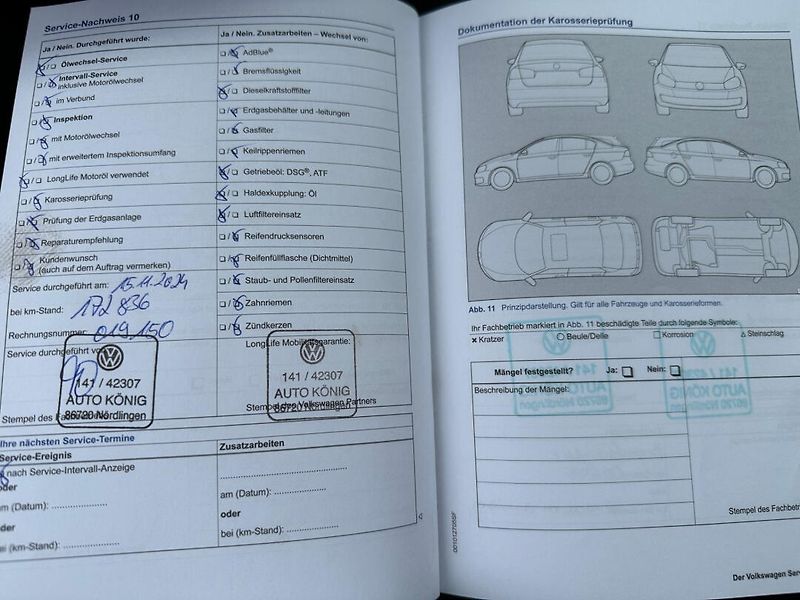 Service-Nachweis 10
Ja / Nein. Durchgeführt wurde:
Ölwechsel-Service
Intervall-Service
inklusive Motorölwechsel
im Verbund
Inspektion
mit Motorölwechsel
mit erweitertem Inspektionsumfang
LongLife Motoröl verwendet
Karosserieprüfung
Prüfung der Erdgasanlage
Reparaturempfehlung
Kundenwunsch
(auch auf dem Auftrag vermerken)
Service durchgeführt am: 15.11.2024
bei km-Stand: 172 836
Rechnungsnummer 019 150
Service durchgeführt von
141 / 42307
AUTO KÖNIG
86720 Nördlingen
Stempel des
Ja / Nein. Zusatzarbeiten – Wechsel von:
AdBlue®
Bremsflüssigkeit
Dieselkraftstofffilter
Erdgasbehälter und -leitungen
Gasfilter
Keilrippenriemen
Getriebeöl: DSG®, ATF
Haldexkupplung: Öl
Luftfiltereinsatz
Reifendrucksensoren
Reifenfüllflasche (Dichtmittel)
Staub- und Pollenfiltereinsatz
Zahnriemen
Zündkerzen
LongLife Mobilitätsgarantie:
141 / 42307
AUTO KÖNIG
86720 Nördlingen
Stempel des Volkswagen Partners
Ihre nächsten Service-Termine
Service-Ereignis
nach Service-Intervall-Anzeige
oder
am (Datum):
oder
bei (km-Stand):
Zusatzarbeiten
am (Datum):
oder
bei (km-Stand):
Dokumentation der Karosserieprüfung
Abb. 11 Prinzipdarstellung. Gilt für alle Fahrzeuge und Karosserieformen.
Ihr Fachbetrieb markiert in Abb. 11 beschädigte Teile durch folgende Symbole:
x Kratzer
Beule/Delle
Korrosion
Steinschlag
Mängel festgestellt? Ja: Nein:
Beschreibung der Mängel:
Stempel des Fachbetri
Der Volkswagen Ser